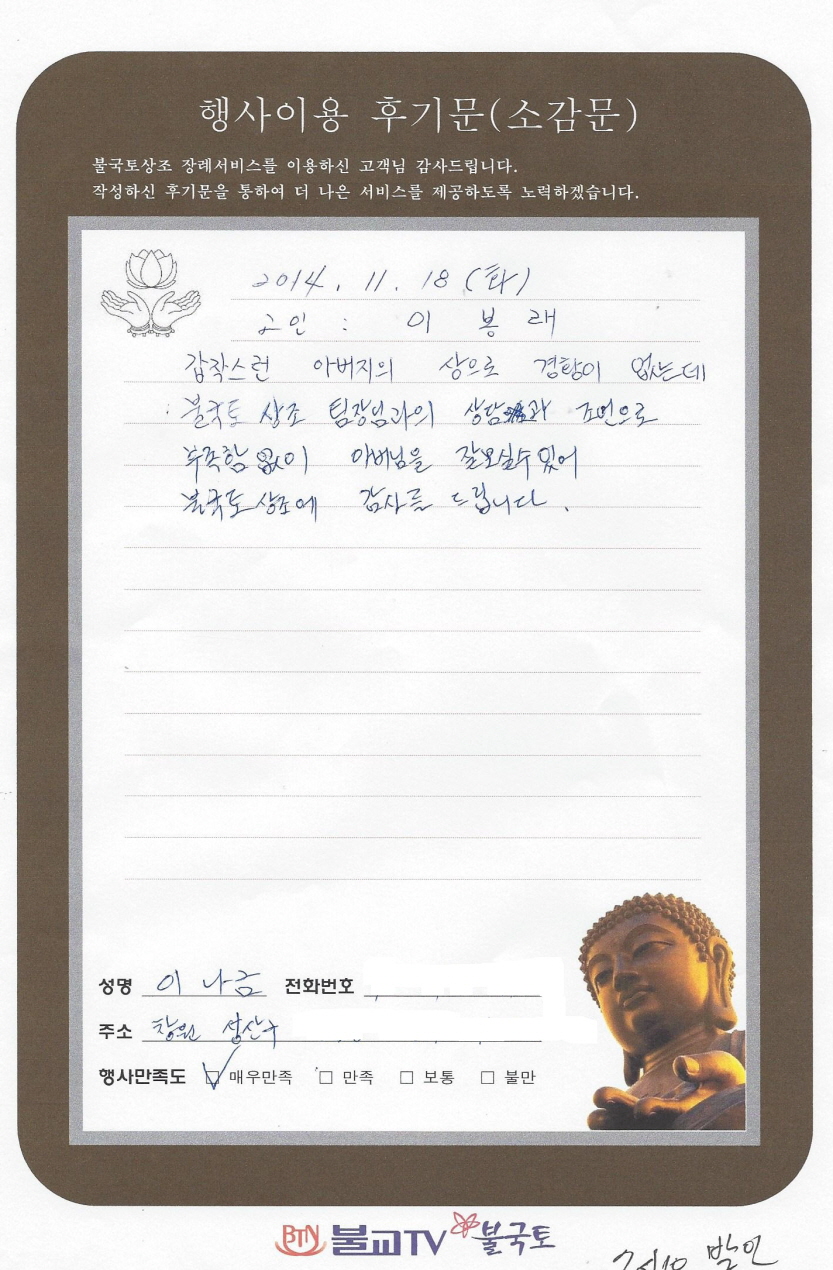 행사이용 후기문(소감문)
불국토상조 장례서비스를 이용하신 고객님 감사드립니다.
작성하신 후기문을 통하여 더 나은 서비스를 제공하도록 노력하겠습니다.
2014. 11. 18 (화)
고인 : 이 봉 래
갑작스런 아버지의 상으로 경황이 없는데
불국토 상조 팀장님과의 상담과 조언으로
부족함 없이 아버님을 잘모실수 있어
불국토 상조에 감사를 드립니다.
성명 이 나금 전화번호
주소 창원 성산구
행사만족도 ☑ 매우만족 □ 만족 □ 보통 □ 불만
BTN 불교TV 불국토
발인